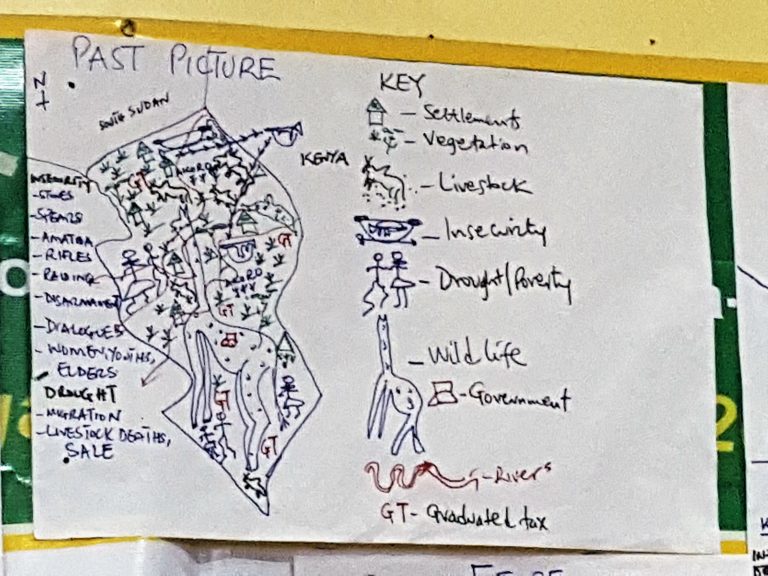 PAST PICTURE
N
SOUTH SUDAN
KENYA
INSECURITY
-SPEARS
-AMATIDA
-RIFLES
-RAIDING
-DISARMAMENT
-DIALOGUES
-WOMEN, YOUTHS,
ELDERS
DROUGHT
-MIGRATION
-LIVESTOCK DEATHS,
SALE
GT
GT
GT
GT
GT
KEY
- Settlements
- Vegetation
- Livestock
- Insecurity
- Drought/Poverty
- Wild life
- Government
- Rivers
GT- Graduated tax
2